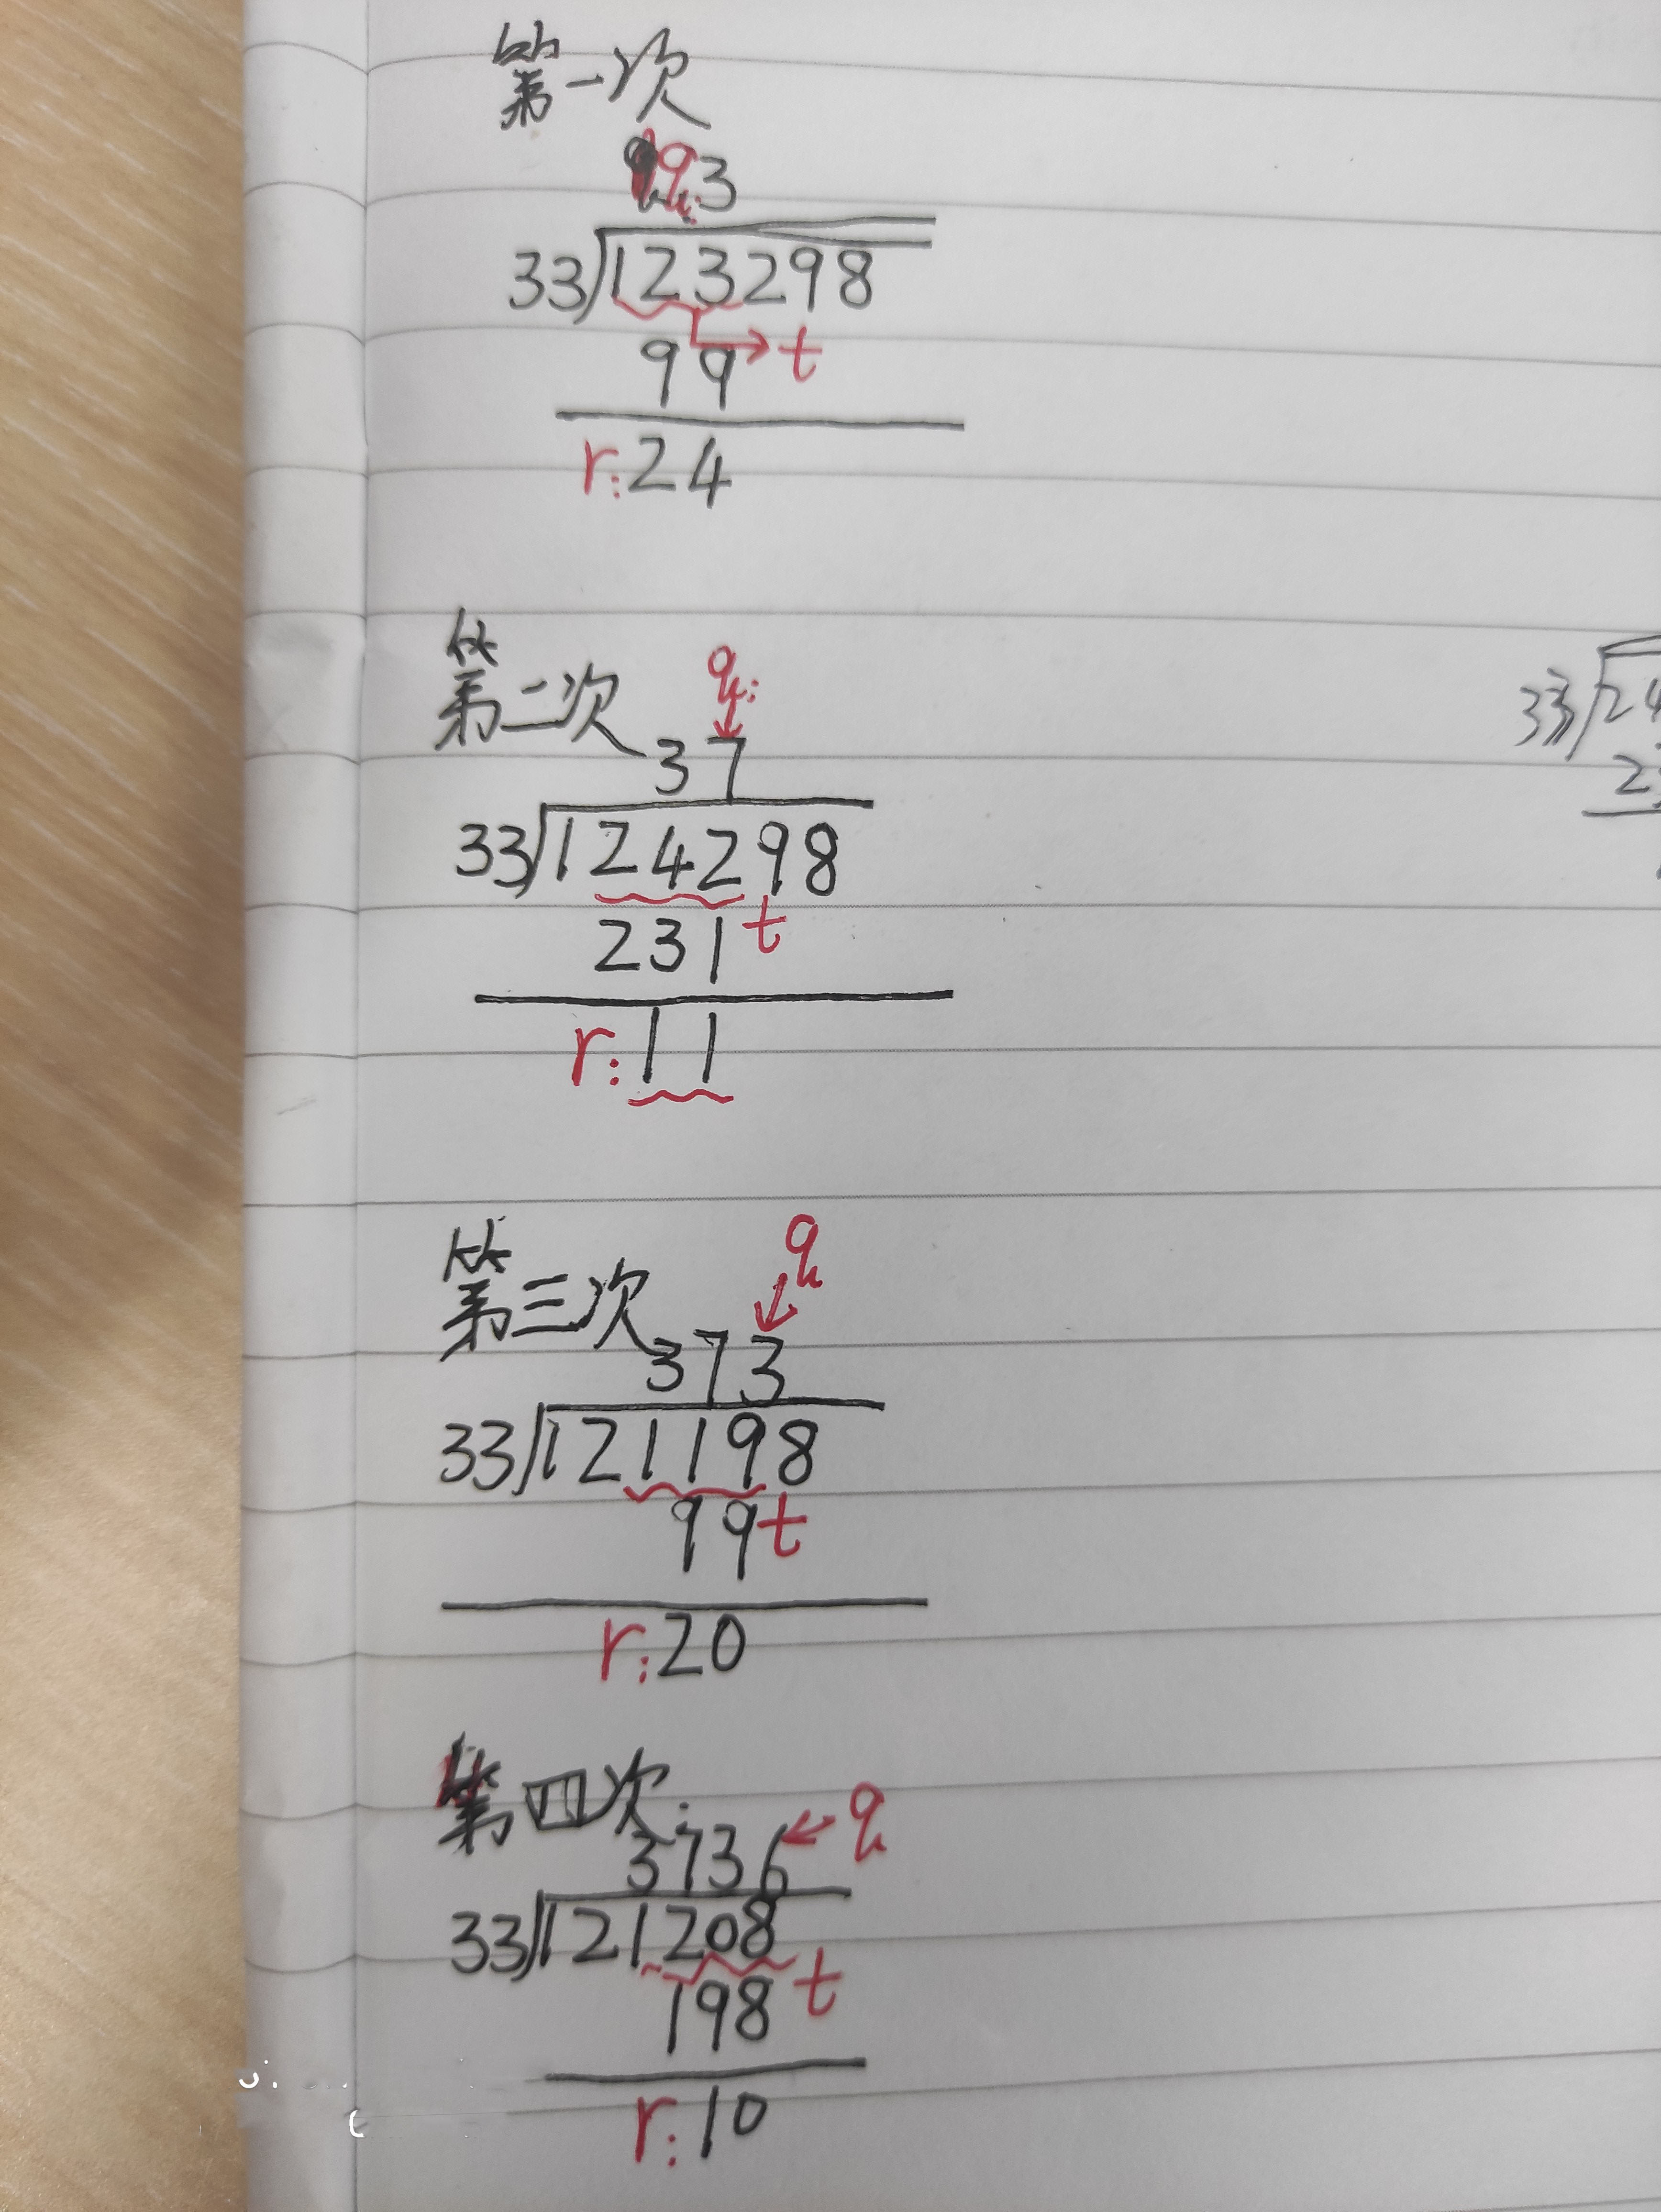 第一次
q:3
33)123298
99 → t
r:24
第二次
q:
37
33)124298
231 t
r:11
第三次
q
373
33)121198
99 t
r:20
第四次:
3736 ← q
33)121208
198 t
r:10
33)24